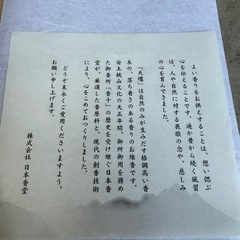 よい香りをお供えすることは、想い偲ぶ
心を伝えることです。遥か昔から続く風習
は、人や自然に対する畏敬の念や、慈しみ
の心を育んできました。
「天壇」は自然のみが生みだす格調高い香
木の、落ち着きのある香りのお線香です。
安土桃山文化の天正年間、御所御用を務め
た御香所「香十」の歴史を受け継ぐ日本香
堂が、厳選した香原料と、現代の創香技術
により、心をこめておつくりしました。
どうぞ末永くご愛用くださいますよう、
お願い申し上げます。
株式会社 日本香堂